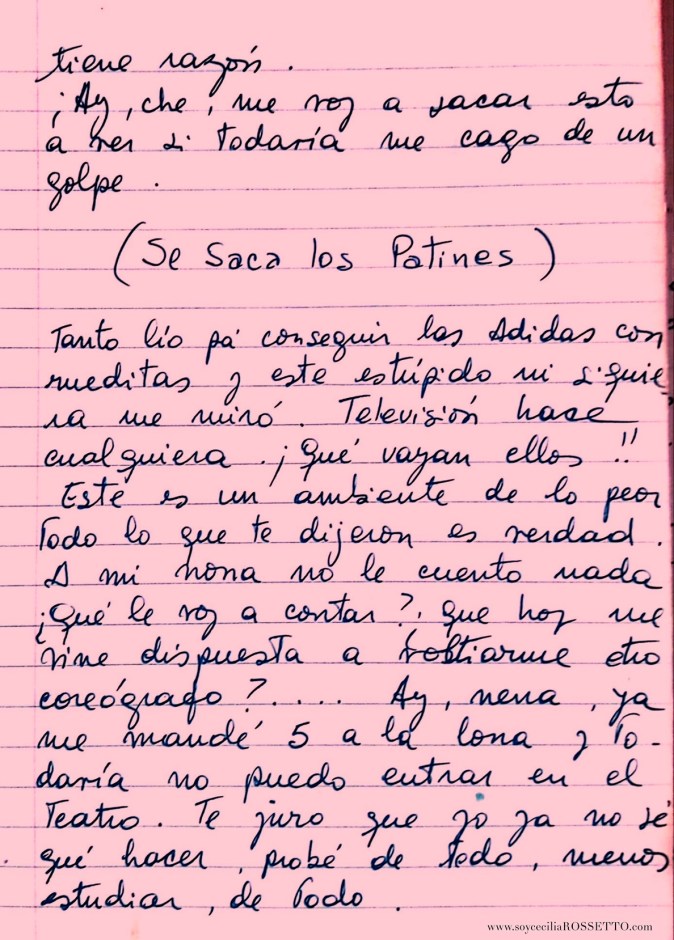 tiene razón.
¡Ay, che, me voy a sacar esto
a ver si todavía me cago de un
golpe.
(Se saca los Patines)
Tanto lío pa' conseguir las Adidas con
rueditas y este estúpido ni siquie
ra me miró. Televisión hace
cualquiera. ¡Qué vayan ellos!!
Esté es un ambiente de lo peor
Todo lo que te dijeron es verdad.
A mi nona no le cuento nada
¿Qué le voy a contar?. Que hoy me
vine dispuesta a voltiarme otro
coreógrafo?..... Ay, nena, ya
me mandé 5 a la lona y To-
davía no puedo entrar en el
Teatro. Te juro que yo ya no sé
qué hacer, probé de todo, menos
estudiar, de Todo.
www.soyceciliaROSSETTO.com